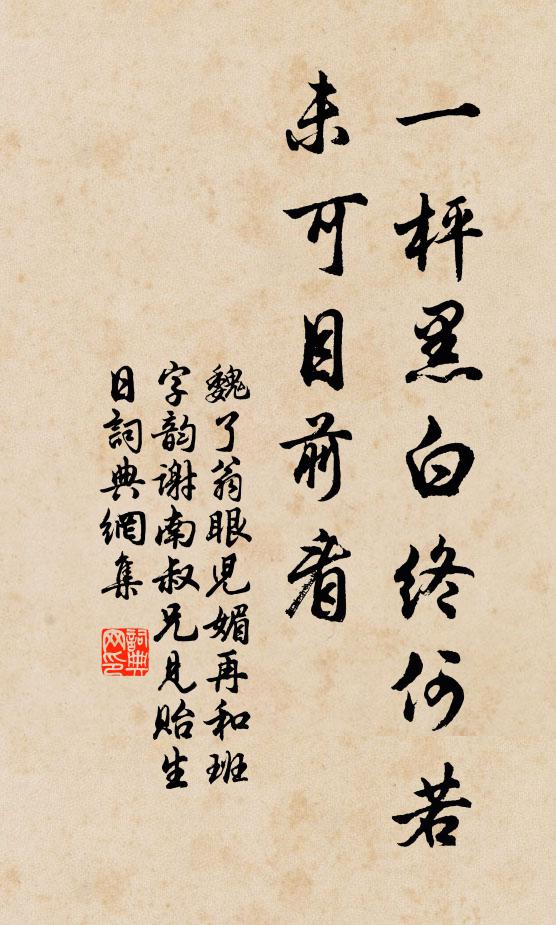 一枰黑白終何若
未可目前看
魏了翁眼児媚再和班
字韵谢南叔兄見貽生
日詞典網集
詞典
网印